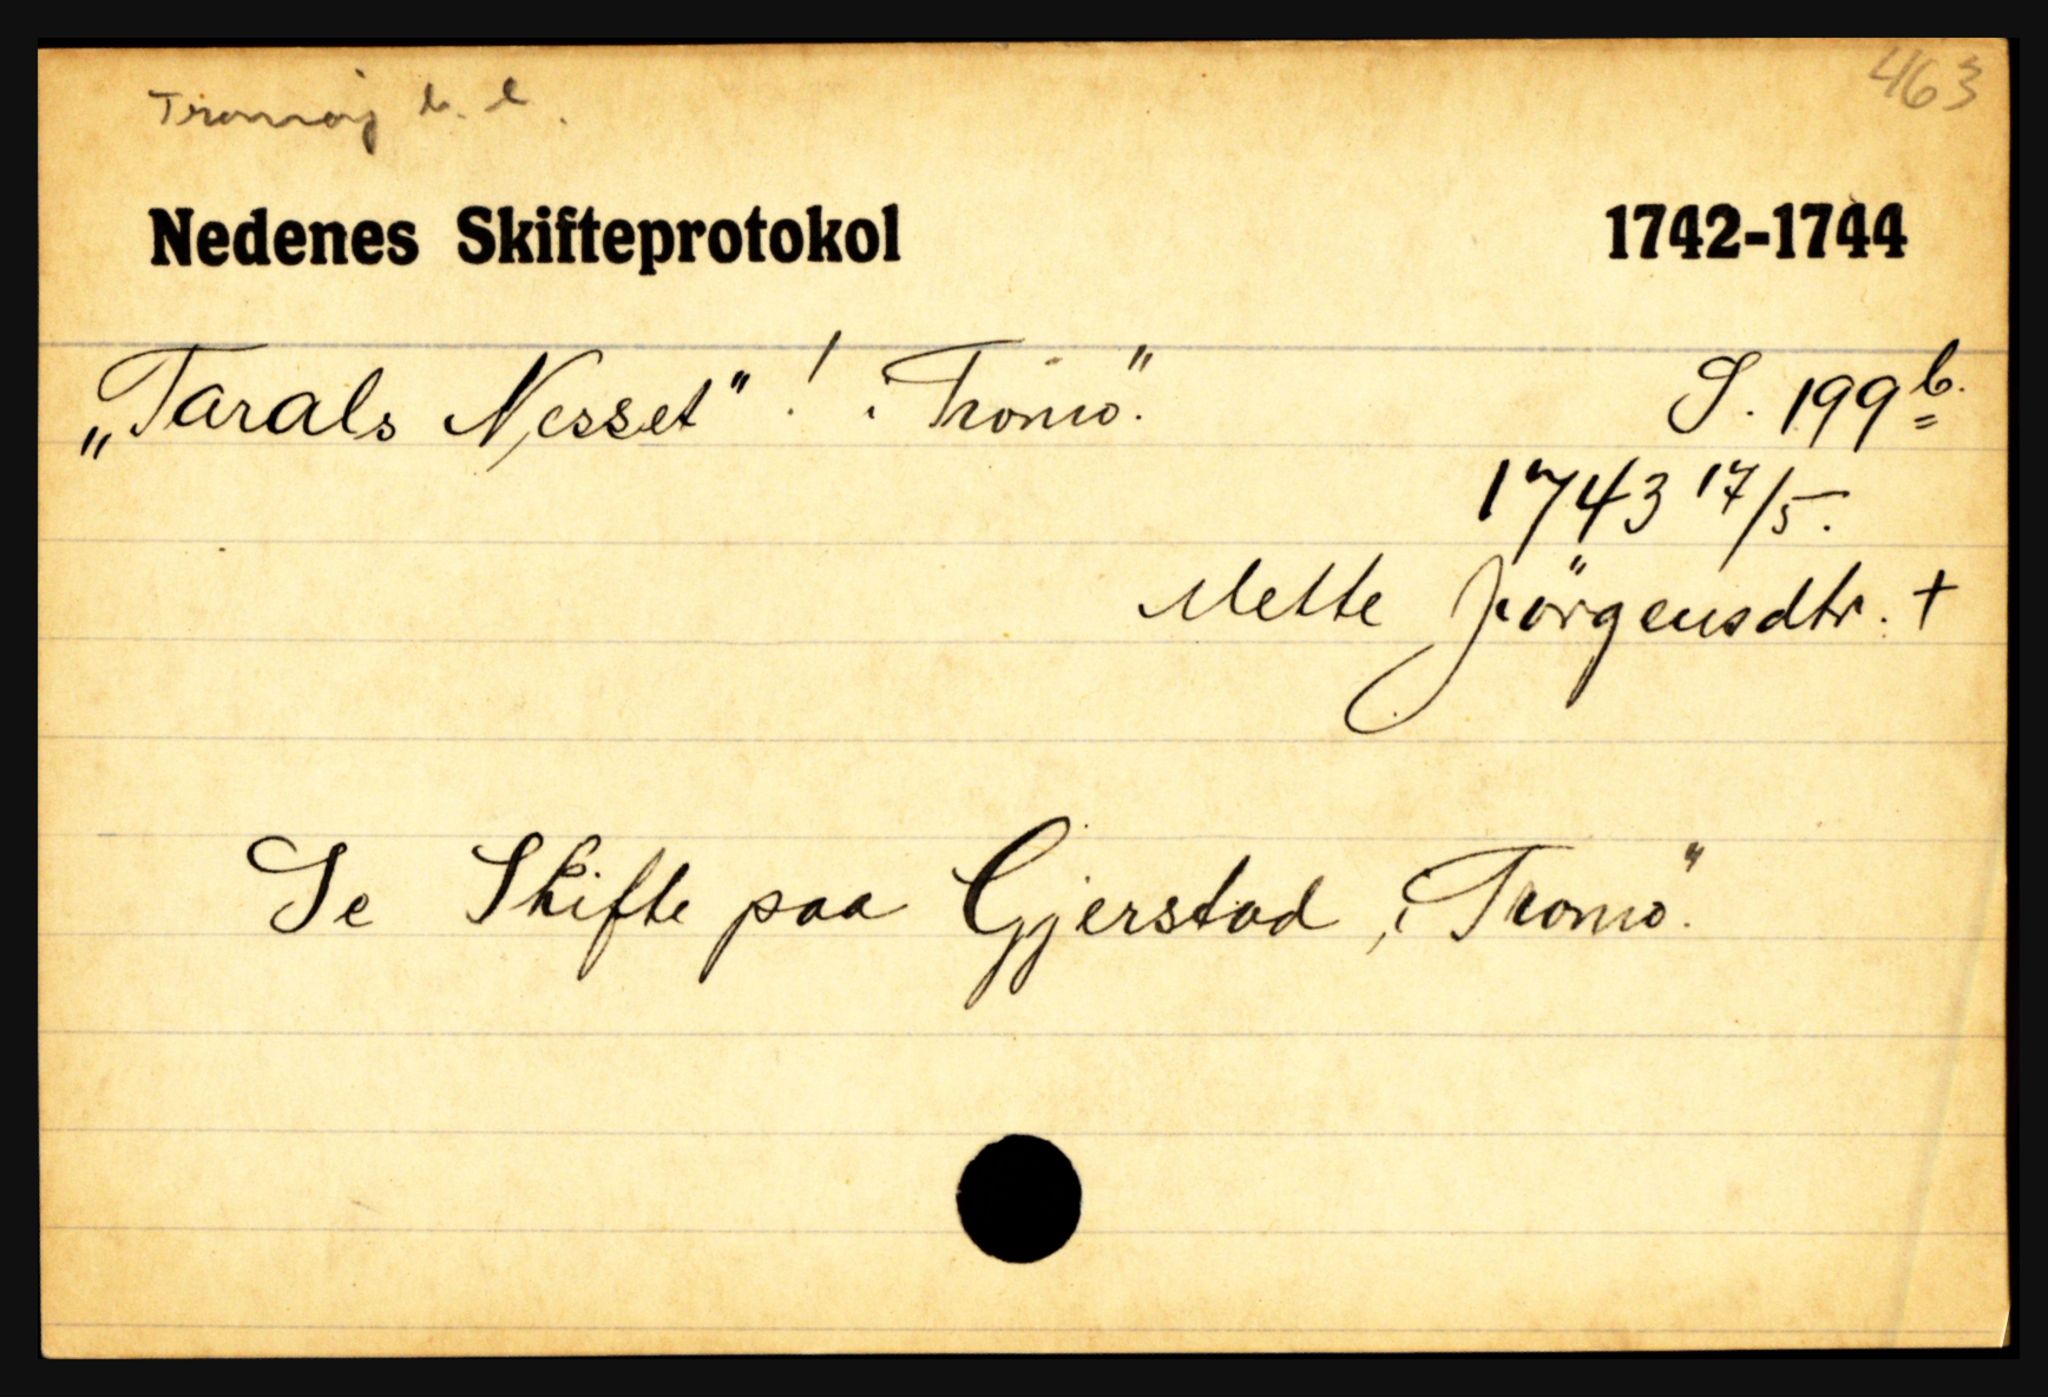 463
Tromöy b. l.
Nedenes Skifteprotokol 1742-1744
„Tarals Nesset" ! i Tromö. S. 199 b.
1743 17/5.
Mette Jörgensdtr. +
Se Skifte paa Gjerstad, i Tromö.